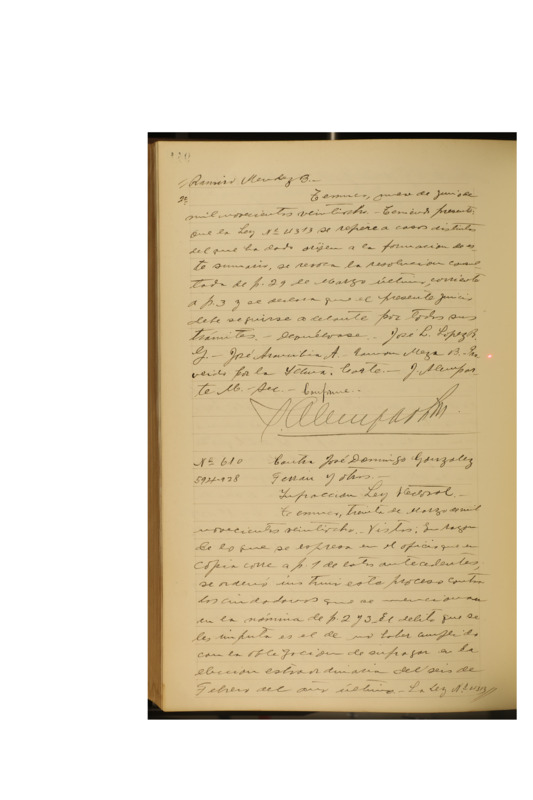 Ramiro Mendez B.-
2º
Temuco, nueve de junio de
mil novecientos veintiocho.- Teniendo presente,
que la Ley Nº 4313 se refiere a casos distintos
del que ha dado origen a la formacion de es
te sumario, se revoca la resolucion consul
tada de f. 29 de Marzo último, corriente
a f. 3 y se declara que el presente juicio
debe seguirse adelante por todos sus
trámites.- Devuélvase.- José L. Lopez B.
G.- José Arancibia A.- Ramon Meza B.- Pro
veido por la Iltma. Corte.- J. Alempar
te M.- Sec.- Conforme.-
Nº 610 Contra José Domingo Gonzalez
y otros.-
Infraccion Ley Electoral.-
Temuco, treinta de Marzo de mil
novecientos veintiocho. Vistos: En razon
de lo que se espresa en el oficio que en
copia corre a f. 1 de estos antecedentes,
se ordenó instruir este proceso contra
los ciudadanos que se mencionan
en la nómina de f. 2 y 3. El delito que se
les imputa es el de no haber cumplido
con la obligacion de sufragar en la
eleccion estraordinaria del seis de
Febrero del año último.- La Ley Nº 4313